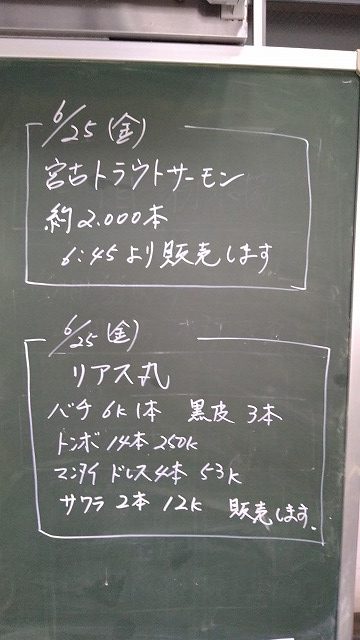 6/25(金)
宮古トラウトサーモン
約2.000本
6:45より販売します
6/25(金)
リアス丸
バチ 6K 1本 黒皮 3本
トンボ 14本 250K
マンダイ ドレス4本 53K
サワラ 2本 12K 販売します.